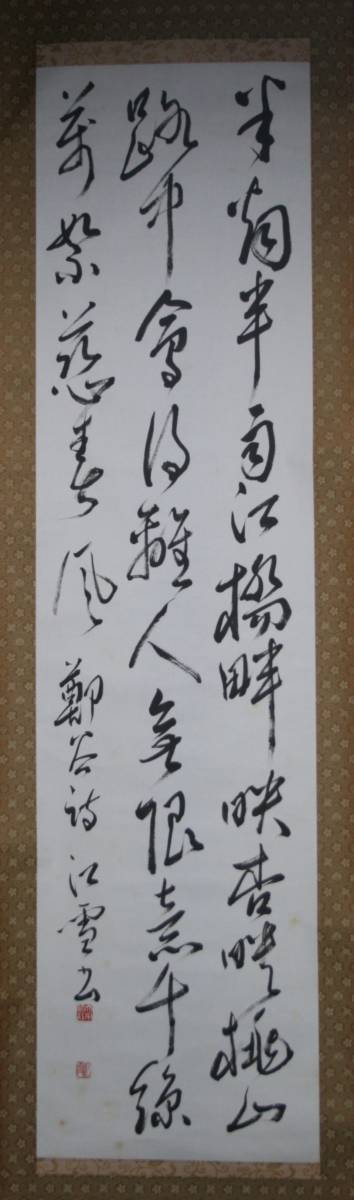 半烟半雨江橋畔映杏映桃山
路中會得離人無限意千絲
萬絮惹春風 鄭谷詩 江雪書